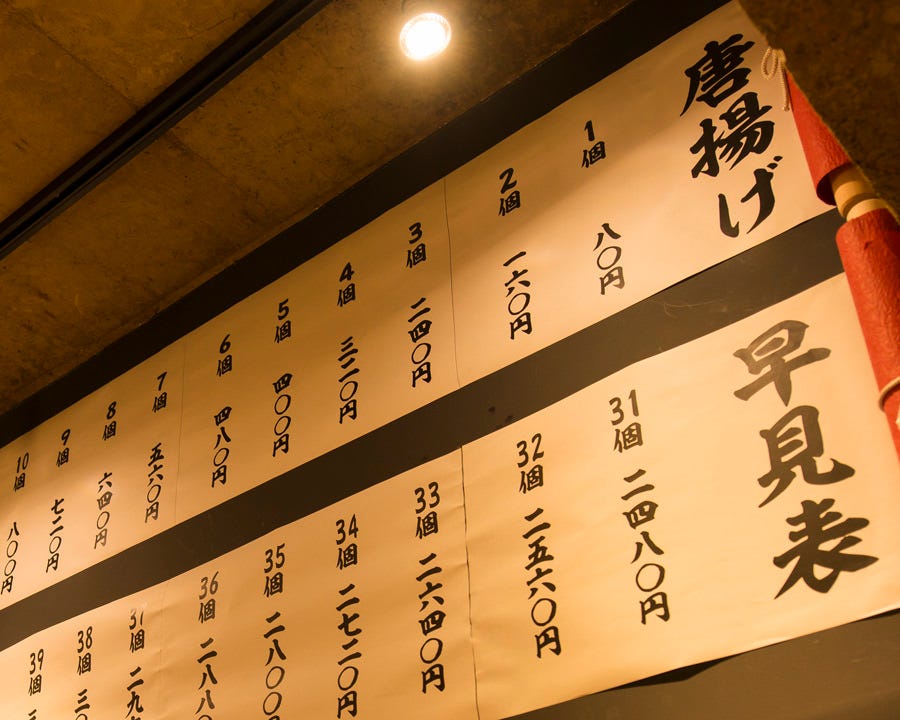 唐揚げ
1個 八〇円
2個 一六〇円
3個 二四〇円
4個 三二〇円
5個 四〇〇円
6個 四八〇円
7個 五六〇円
8個 六四〇円
9個 七二〇円
10個 八〇〇円
早見表
31個 二四八〇円
32個 二五六〇円
33個 二六四〇円
34個 二七二〇円
35個 二八〇〇
36個 二八八
37個 二九
38個 三〇
39個 三